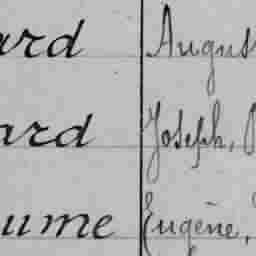 ard August
ard Joseph,
ume Eugène,